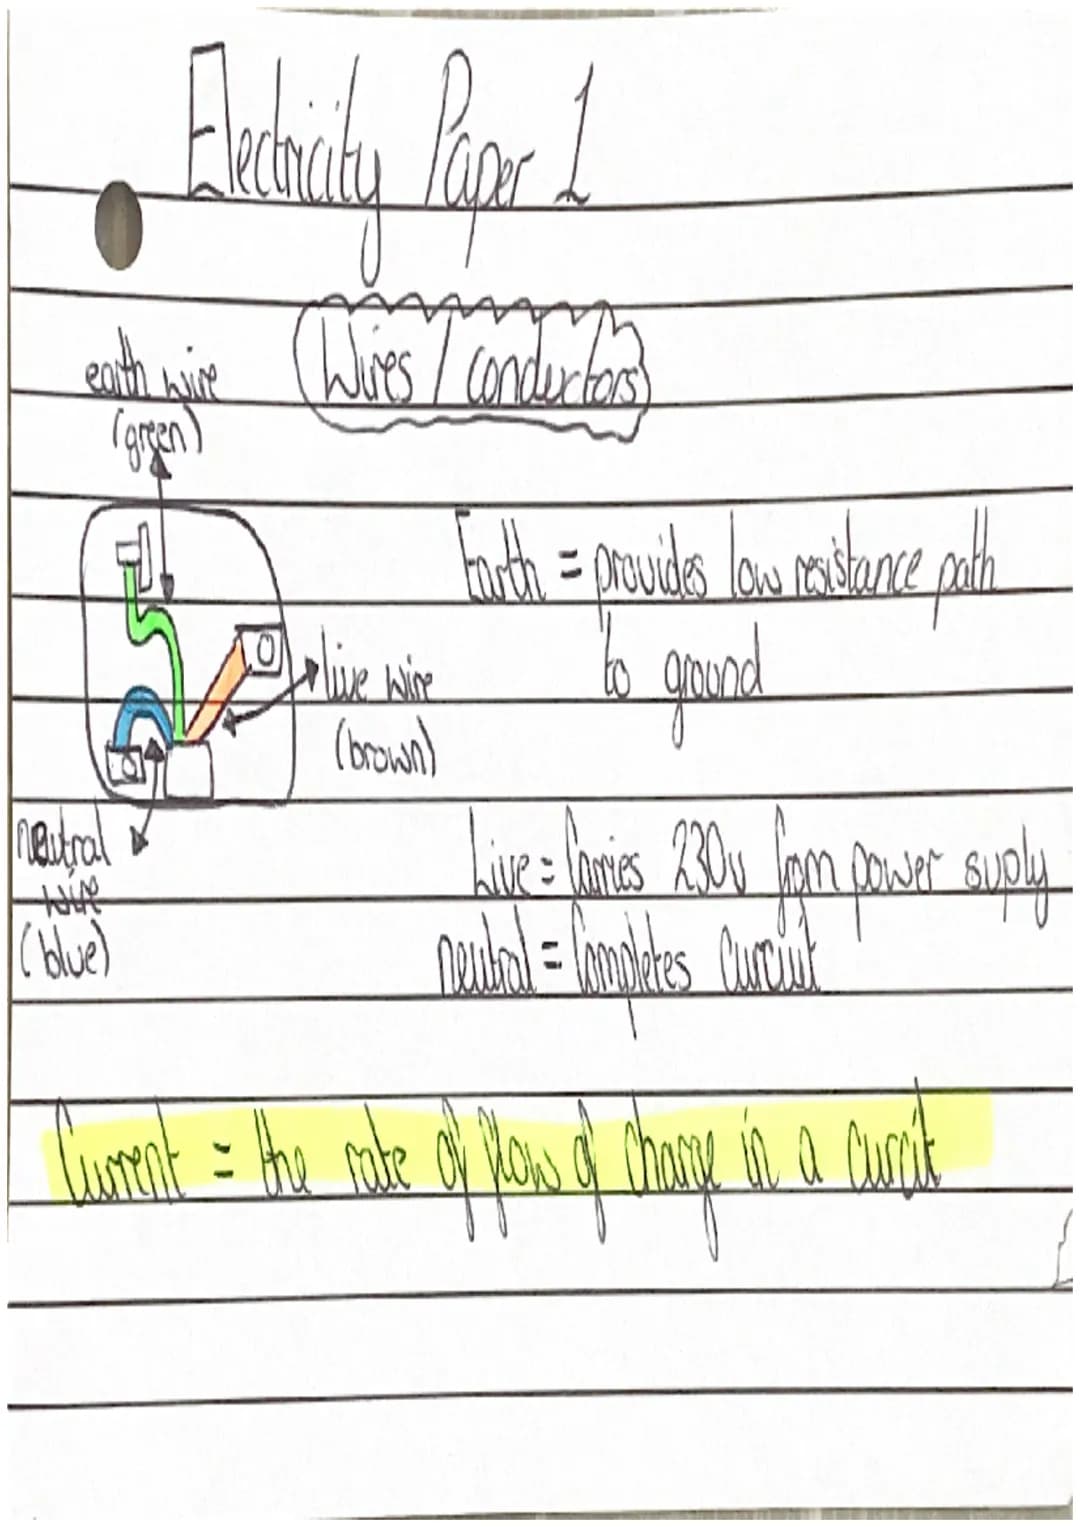 Electricity Paper 1
Wires / conductors
earth wire
(green)
Earth = provides low resistance path
to ground
live wire
(brown)
neutral
wire
(blue)
Live = Carries 230v from power suply
neutral = Completes Curcuit
Current = the rate of flow of charge in a curcit